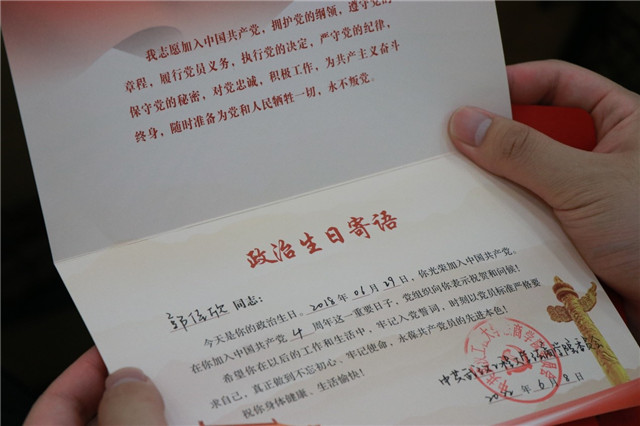 我志愿加入中国共产党，拥护党的纲领，遵守党的
章程，履行党员义务，执行党的决定，严守党的纪律，
保守党的秘密，对党忠诚，积极工作，为共产主义奋斗
终身，随时准备为党和人民牺牲一切，永不叛党。
政治生日寄语
同志：
今天是你的政治生日。2018年06月29日，你光荣加入中国共产党。
在你加入中国共产党4周年这一重要日子，党组织向你表示祝贺和问候！
希望你在以后的工作和生活中，牢记入党誓词，时刻以党员标准严格要
求自己，真正做到不忘初心、牢记使命，永葆共产党员的先进本色！
祝你身体健康、生活愉快！
中共
年6月8日